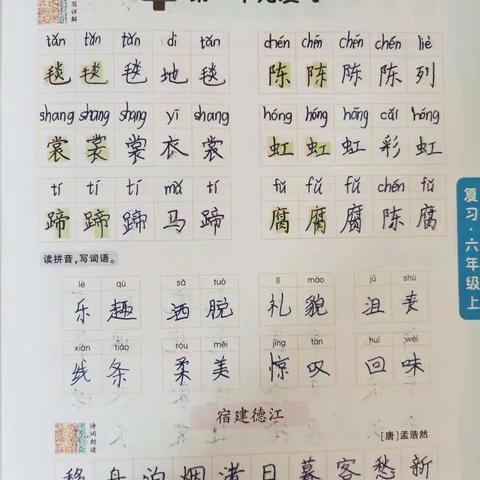 写详解
tǎn tǎn tǎn dì tǎn chén chén chén chén liè
毯 毯 毯 地 毯 陈 陈 陈 陈 列
shang shang shang yī shang hóng hóng hóng cǎi hóng
裳 裳 裳 衣 裳 虹 虹 虹 彩 虹
tí tí tí mǎ tí fǔ fǔ fǔ chén fǔ
蹄 蹄 蹄 马 蹄 腐 腐 腐 陈 腐
复习·六年级上
读拼音，写词语。
lè qù sǎ tuō lǐ mào jǔ
乐 趣 洒 脱 礼 貌 沮
xiàn tiáo róu měi jīng tàn huí wèi
线 条 柔 美 惊 叹 回 味
诗词朗读
宿建德江
[唐]孟浩然
移 舟 泊 烟 渚 日 暮 客 愁 新